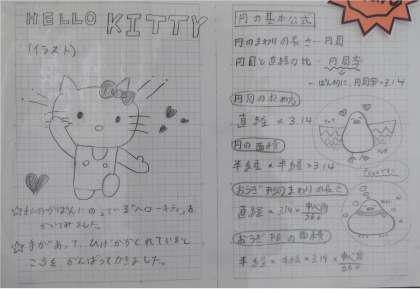 HELLO KITTY
(イラスト)
☆わたしのかばんにのっているハローキティを
かいてみました。
☆手があって、ひげがかくれている
ところをがんばってかきました。
円の基本公式
円のまわりの長さ…円周
円周と直径の比…円周率
一般的に、円周率=3.14
円周の長さ
直径×3.14
円の面積
半径×半径×3.14
おうぎ形のまわりの長さ
直径×3.14×中心角/360
おうぎ形の面積
半径×半径×3.14×中心角/360